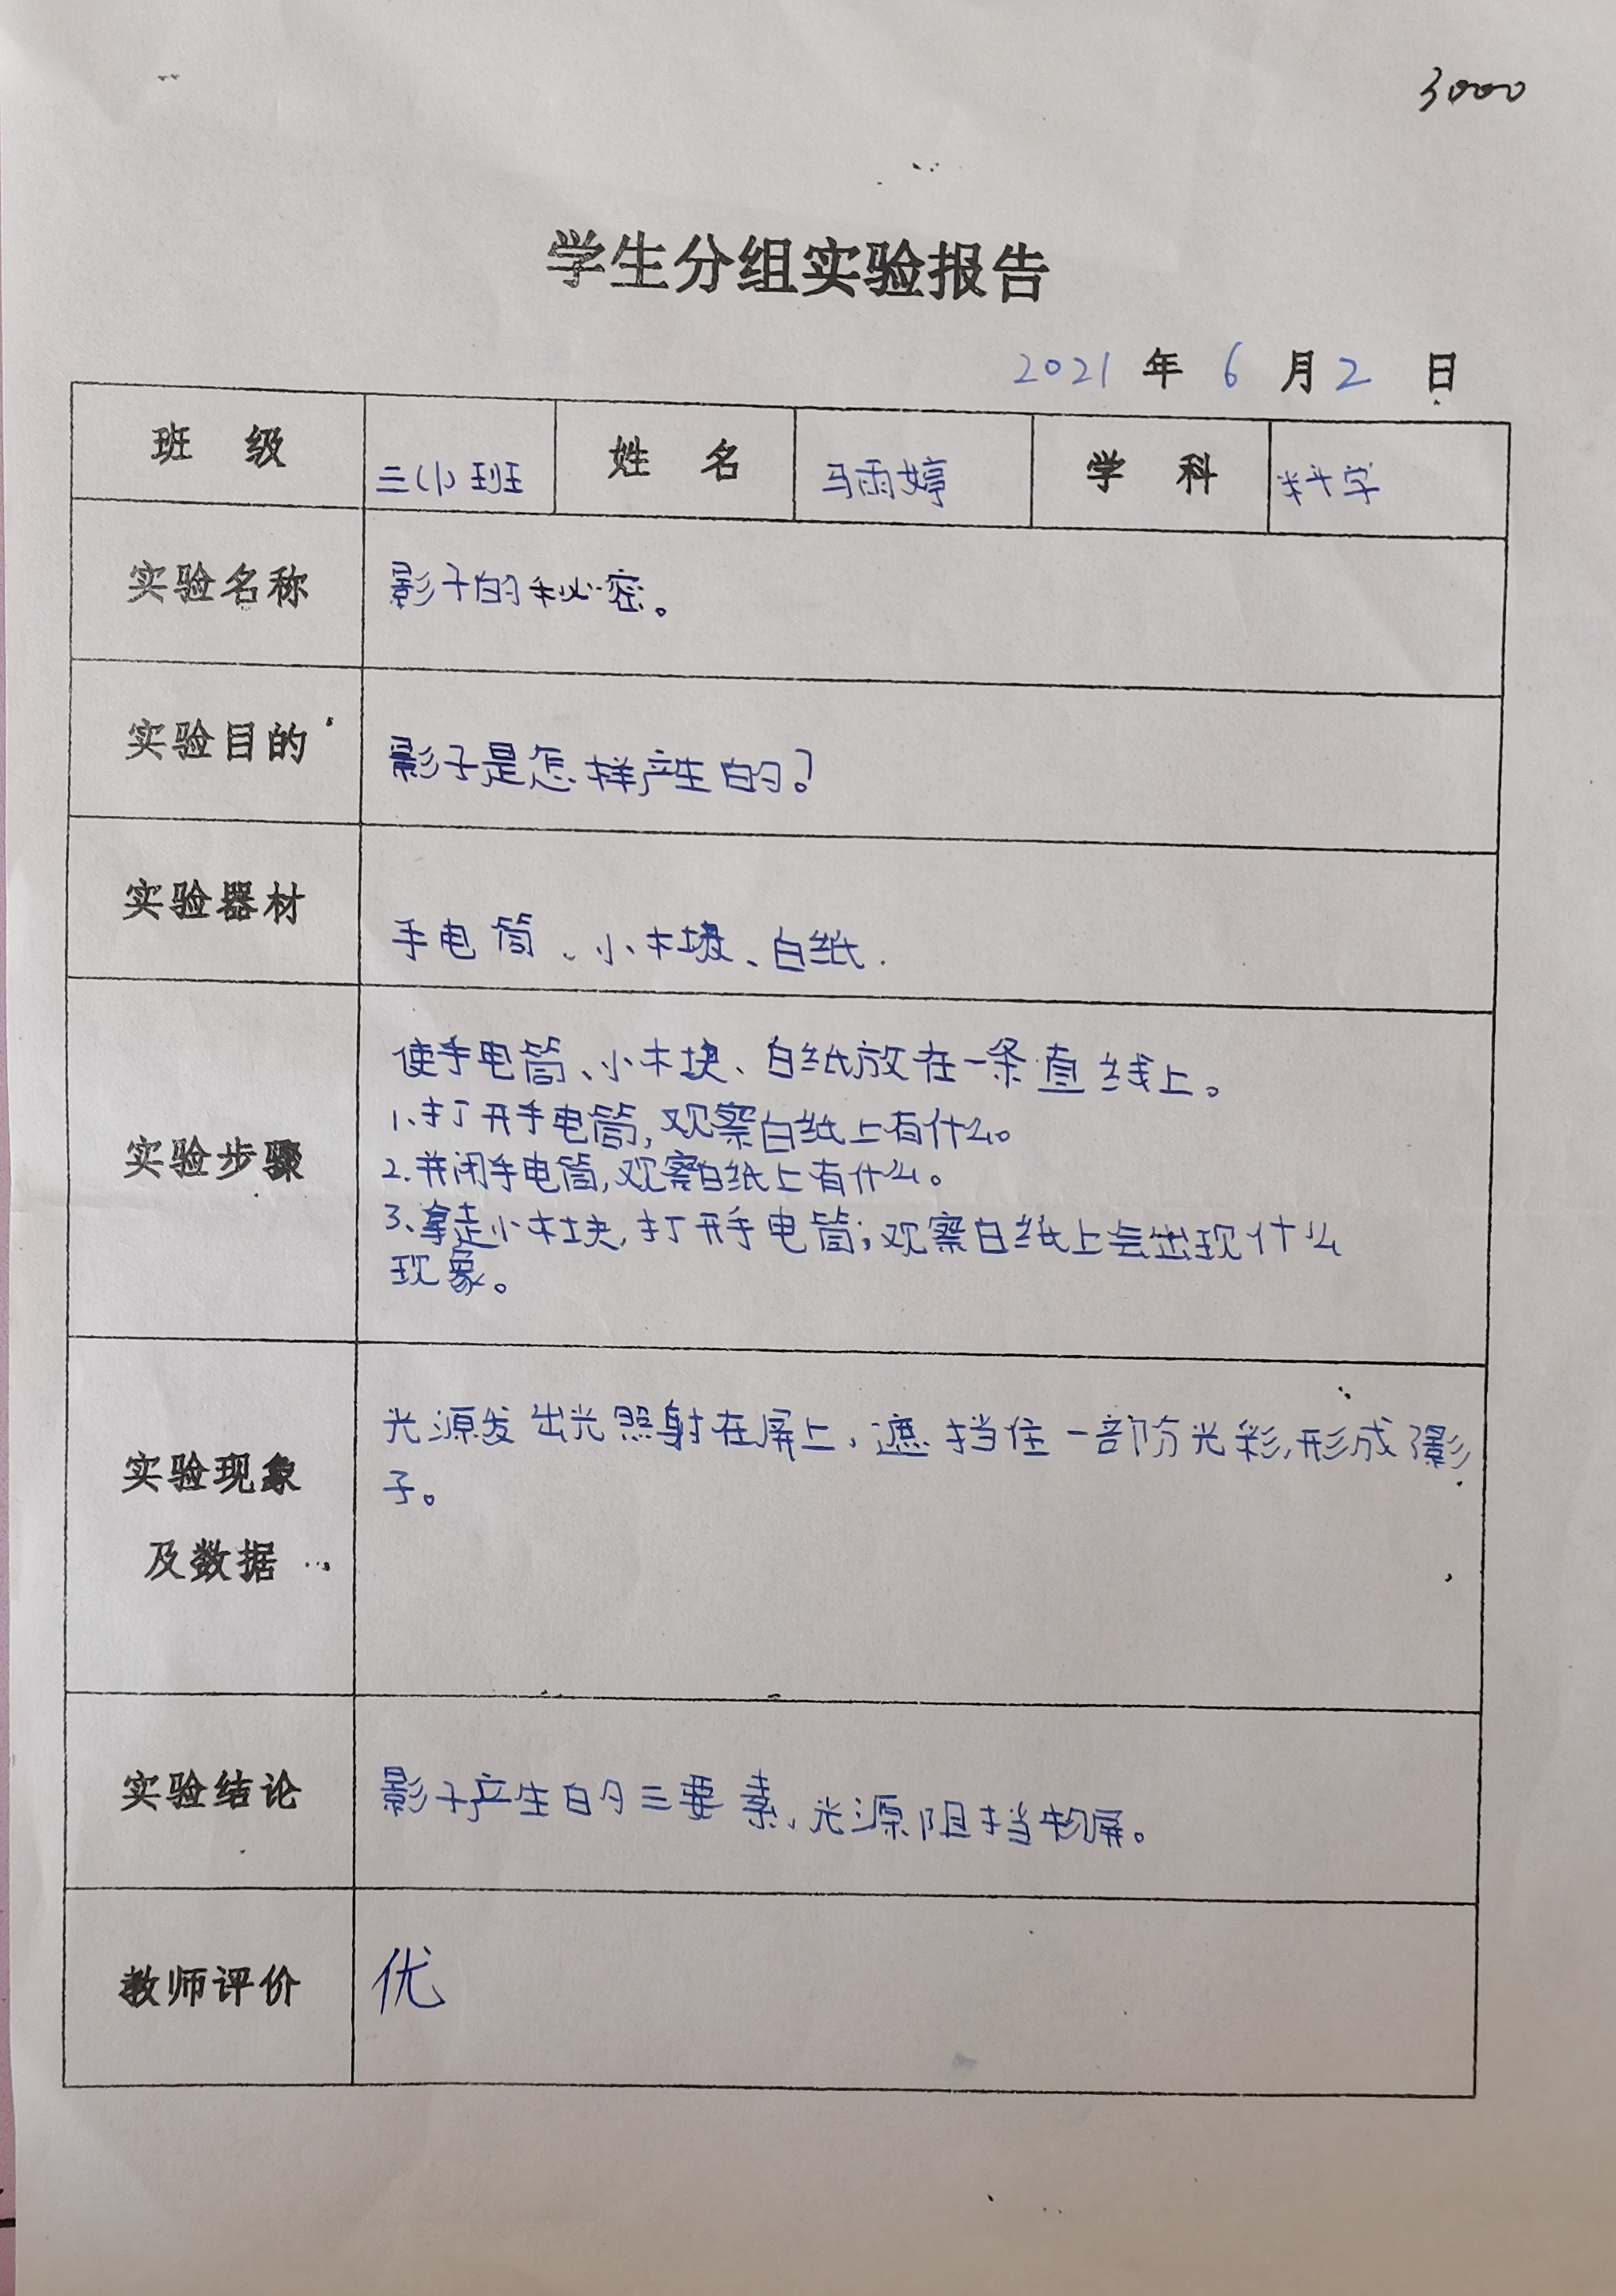 3000
学生分组实验报告
2021 年 6 月 2 日
班 级 三(1)班 姓 名 马雨婷 学 科 科学
实验名称 影子的秘密。
实验目的 影子是怎样产生的?
实验器材 手电筒、小木块、白纸.
实验步骤
使手电筒、小木块、白纸放在一条直线上。
1.打开手电筒,观察白纸上有什么。
2.关闭手电筒,观察白纸上有什么。
3.拿走小木块,打开手电筒;观察白纸上会出现什么
现象。
实验现象
及数据
光源发出光照射在屏上,遮挡住一部分光彩,形成了影
子。
实验结论 影子产生的三要素、光源阻挡物屏。
教师评价 优